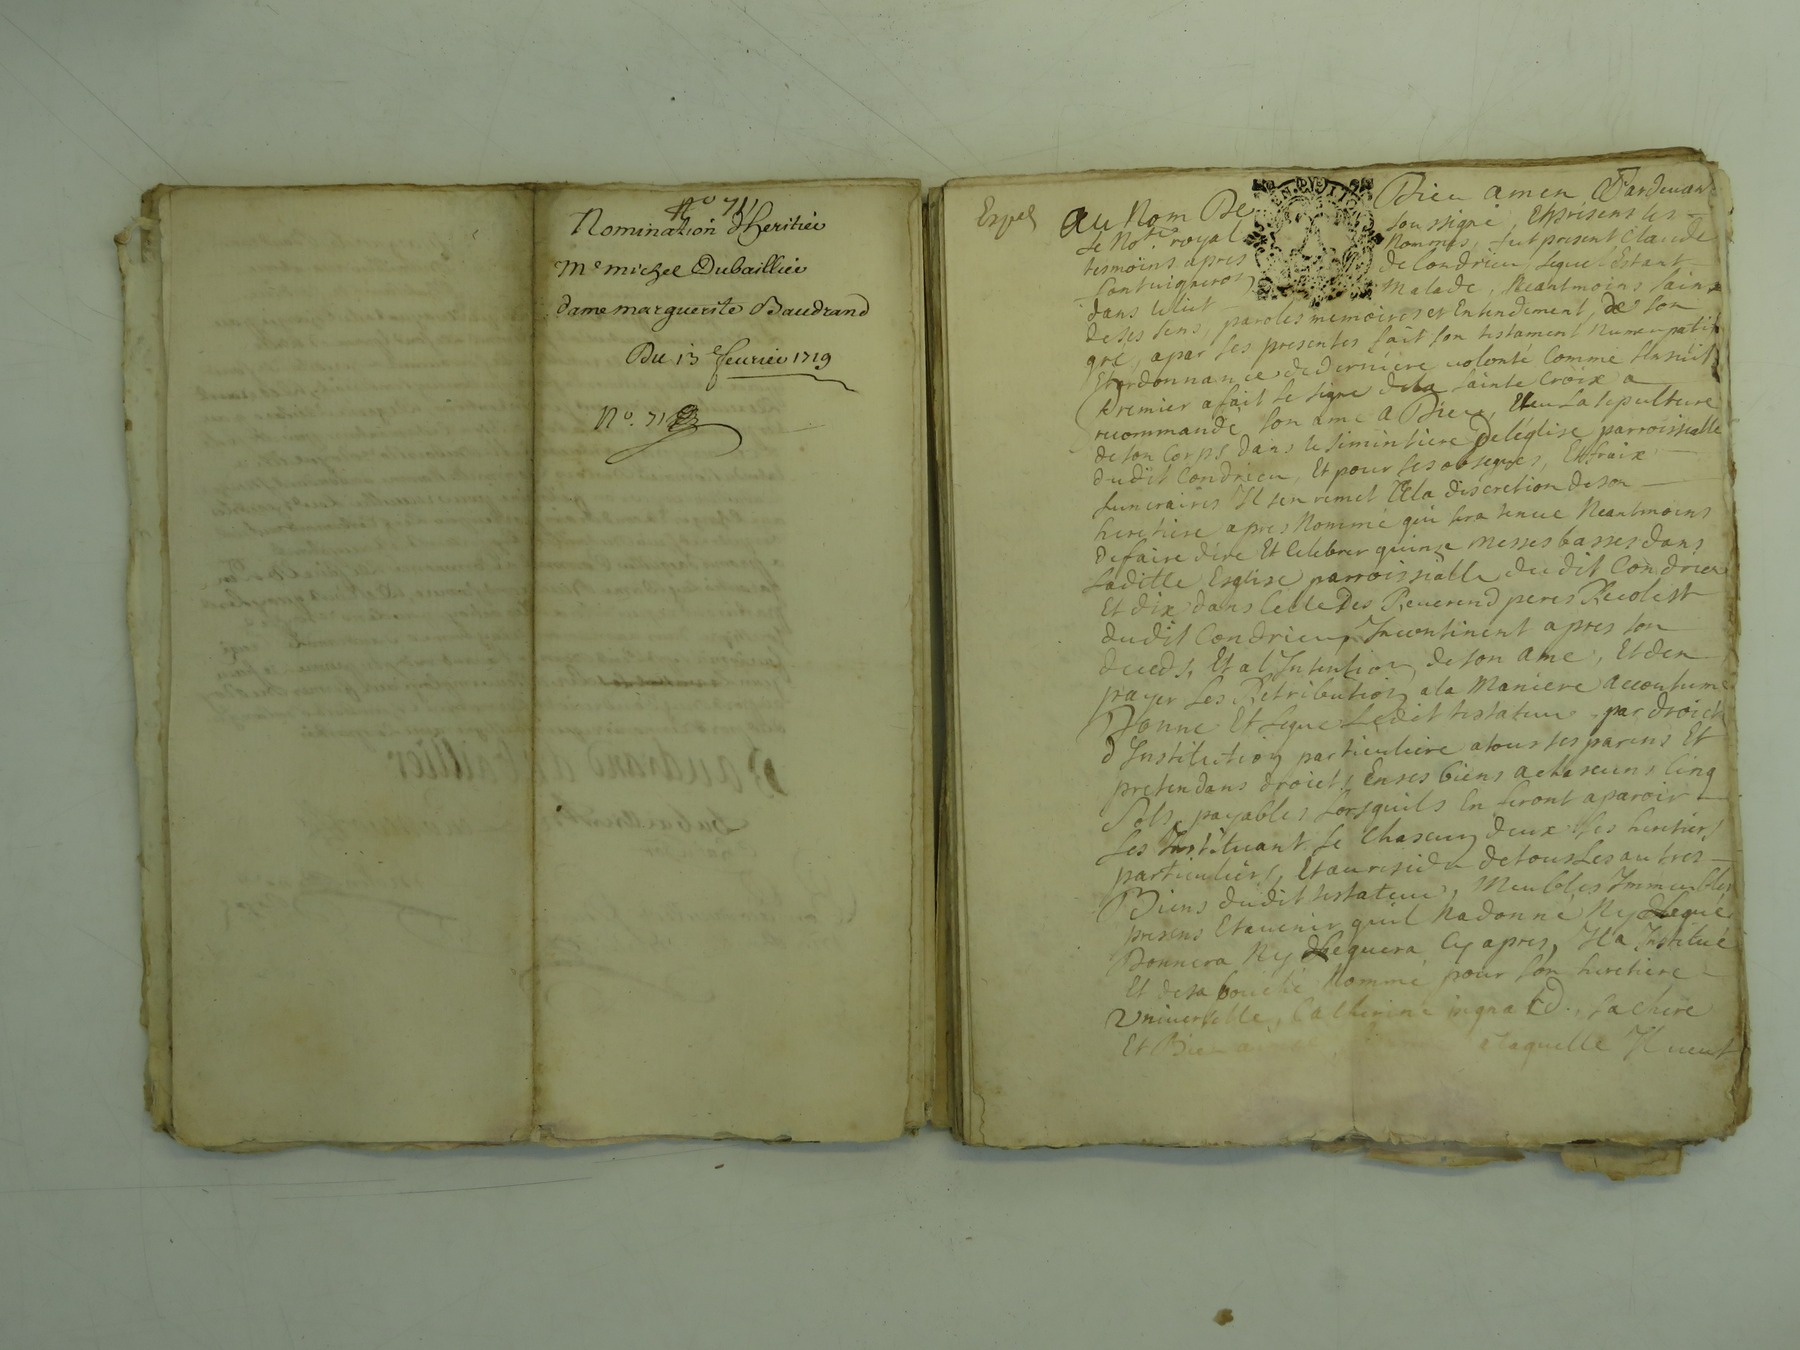 N° 71
Nomination d'heritier
Me michel Dubaillier
dame marguerite Baudrand
Du 13e feurier 1719
N°. 71
Expe
Au Nom De Dieu amen Pardeuant
le Nore royal soussigné, Et présens les
tesmoins apres Nommés, fut present Claude
de Condrieu, lequel Estant
dans le lict malade, Neantmoins sain
de ses sens, paroles memoires et Entendement, de son
gré, a par ses presentes fait son testament Nuncupatif
Et ordonnance de derniere volonté Comme s'ensuit
Premier a fait le signe dela sainte Croix a
recommandé son ame a Dieu, Eleu La sepulture
de son Corps dans le simintiere De leglise parroissialle
dudit Condrieu, Et pour ses obseques, Et fraix
funeraires Il sen remet A la discretion de son
heretiere apres Nommé qui sera tenue Neantmoins
De faire dire Et Celebrer quinze Messes basses dans
Laditte Esglise parroissialle du dit Condrieu
Et dix dans Celle Des Reuerend peres Recolest
dudit Condrieu, Incontinent apres son
deceds, Et a l'Intention de son ame, Et den
payer Les Rétribution a la Maniere accoutumé
Donne Et Legue Ledit testateur par droict
d'Institution particuliere a tous ses parens Et
pretendans droicts En ses biens a chascuns Cinq
Sols, payables Lorsquils En feront aparoir
Les Instituant Le Chascun deux ses heritiers
particuliers, Et au residu de tous Les autres
Biens dudit testateur, Meubles Immeubles
presens Et auenir quil Na donné Ny Legué
Donnera Ny Leguera Cy apres, Il a Institué
Et de sa bouche Nommé pour son heretiere
Universelle, Catherine sa chere
Et Bien a laquelle Il ueut